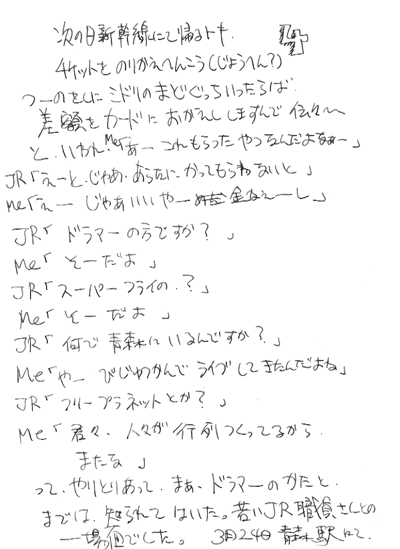 次の日新幹線にて帰るトキ
チケットを のりかえへんこう(じょうへん?)
つーのをしに ミドリのまどぐっちいったらば
差額をカードに おかえししますんで 伝々〜
と、いわれ、Me「あー これもらったやつなんだよなぁー」
JR「えーと、じゃあ、あらたに かってもらわないと」
Me「えー じゃあいいやー 金ねぇーし」
JR「ドラマーの方ですか?」
Me「そーだよ」
JR「スーパーフライの.?」
Me「そーだよ」
JR「何で青森にいるんですか?」
Me「やー びじゅつかんで ライブしてきたんだよね」
JR「フリープラネットとか?」
Me「君々、人々が行列つくってるから
またな」
って、やりとりあって、まぁ、ドラマーのかたと、
までは、知られてはいた。若いJR職員さんとの
一場面でした。 3月24日 青森駅にて.